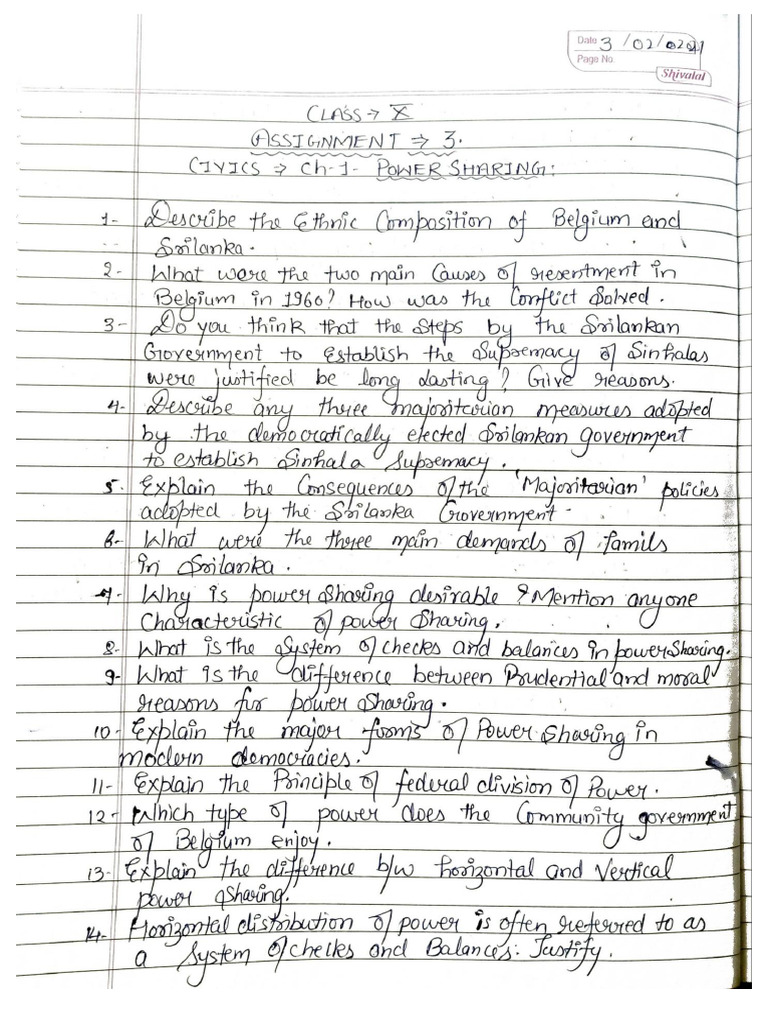 Date 3/02/2021
Page No.
Shivalal
CLASS → X
ASSIGNMENT ⇒ 3.
CIVICS → Ch-1- POWER SHARING:
1- Describe the Ethnic Composition of Belgium and
Srilanka.
2- What were the two main Causes of resentment in
Belgium in 1960? How was the Conflict Solved.
3- Do you think that the Steps by the Srilankan
Government to Establish the Supremacy of Sinhalas
were justified be long lasting? Give reasons.
4- Describe any three majoritarian measures adopted
by the democratically elected Srilankan government
to establish Sinhala Supremacy.
5- Explain the Consequences of the 'Majoritarian' policies
adopted by the Srilanka Government.
6- What were the three main demands of Tamils
in Srilanka.
7- Why is power Sharing desirable? Mention anyone
Characteristic of power Sharing.
8- What is the System of checks and balances in power Sharing.
9- What is the difference between Prudential and moral
reasons for power Sharing.
10- Explain the major forms of Power Sharing in
modern democracies.
11- Explain the Principle of federal division of Power.
12- Which type of power does the Community government
of Belgium enjoy.
13- Explain the difference b/w horizontal and Vertical
power Sharing.
14- Horizontal distribution of power is often referred to as
a System of checks and Balances: Justify.